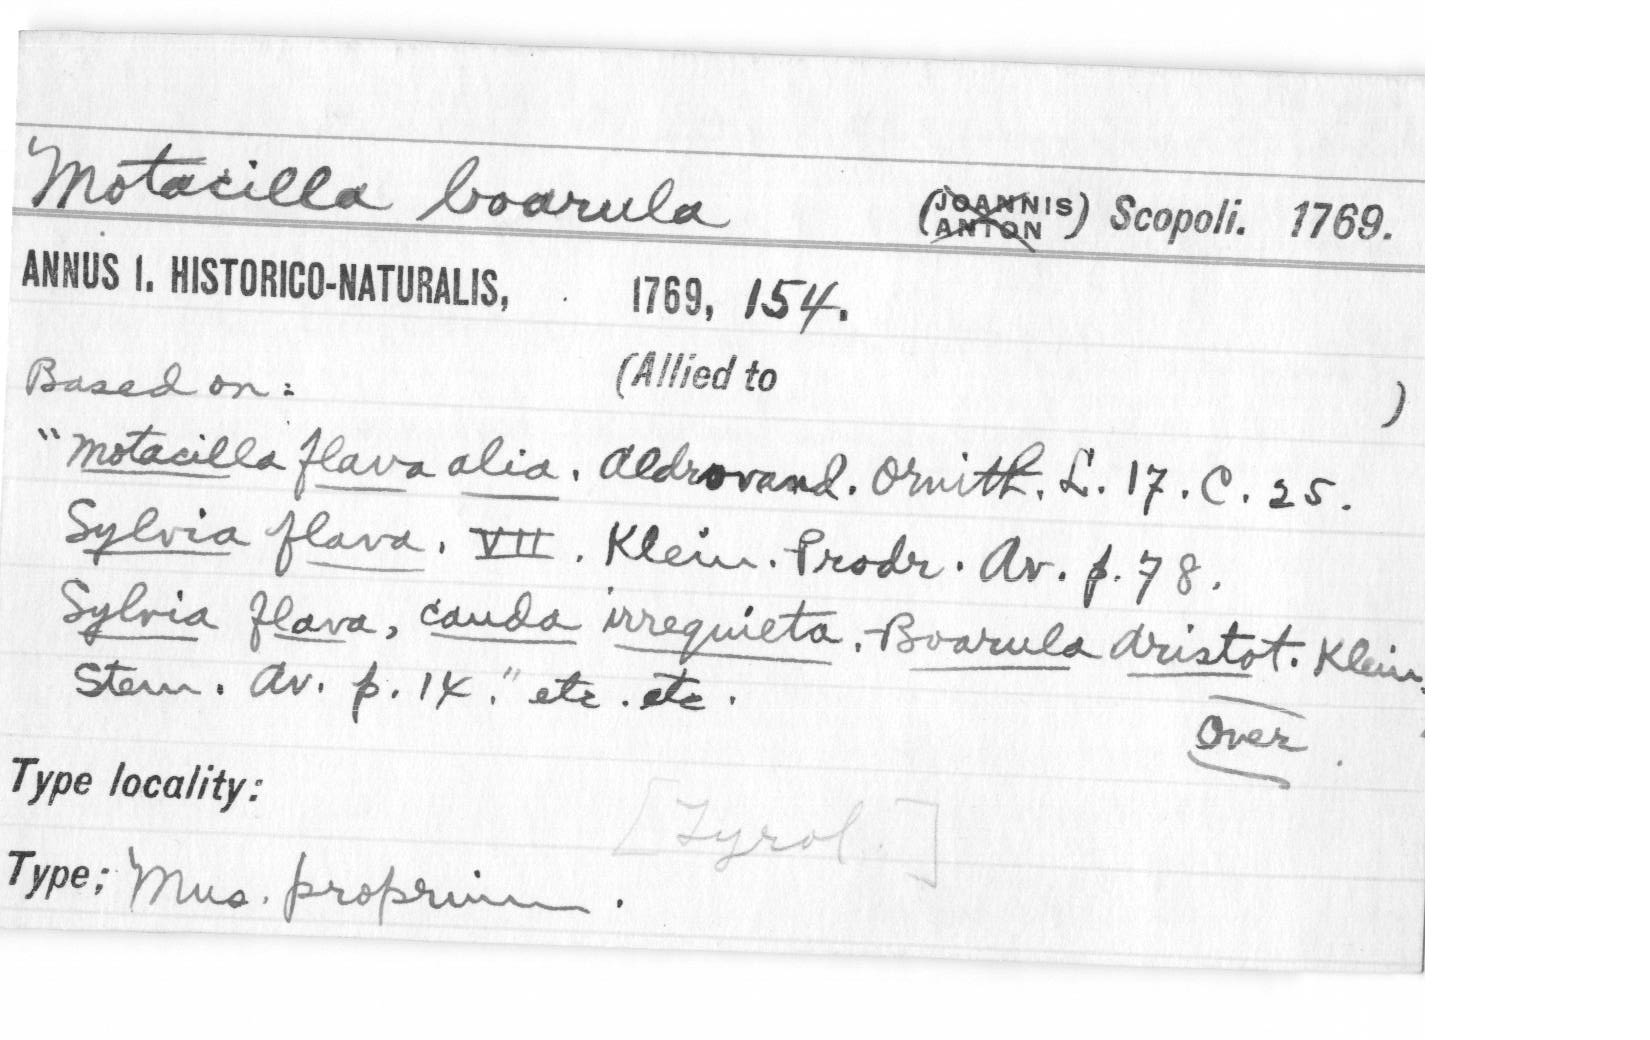 Motacilla boarula (JOANNIS ANTON) Scopoli. 1769.
ANNUS I. HISTORICO-NATURALIS, 1769, 154.
Based on: (Allied to )
"Motacilla flava alia. Aldrovand. Ornith. L. 17. C. 25.
Sylvia flava. VII. Klein. Prodr. Av. p. 78.
Sylvia flava, cauda irrequieta. Boarula Aristot. Klein.
Stem. Av. p. 14." etc. etc.
Over
Type locality: [Tyrol.]
Type: Mus. proprium.